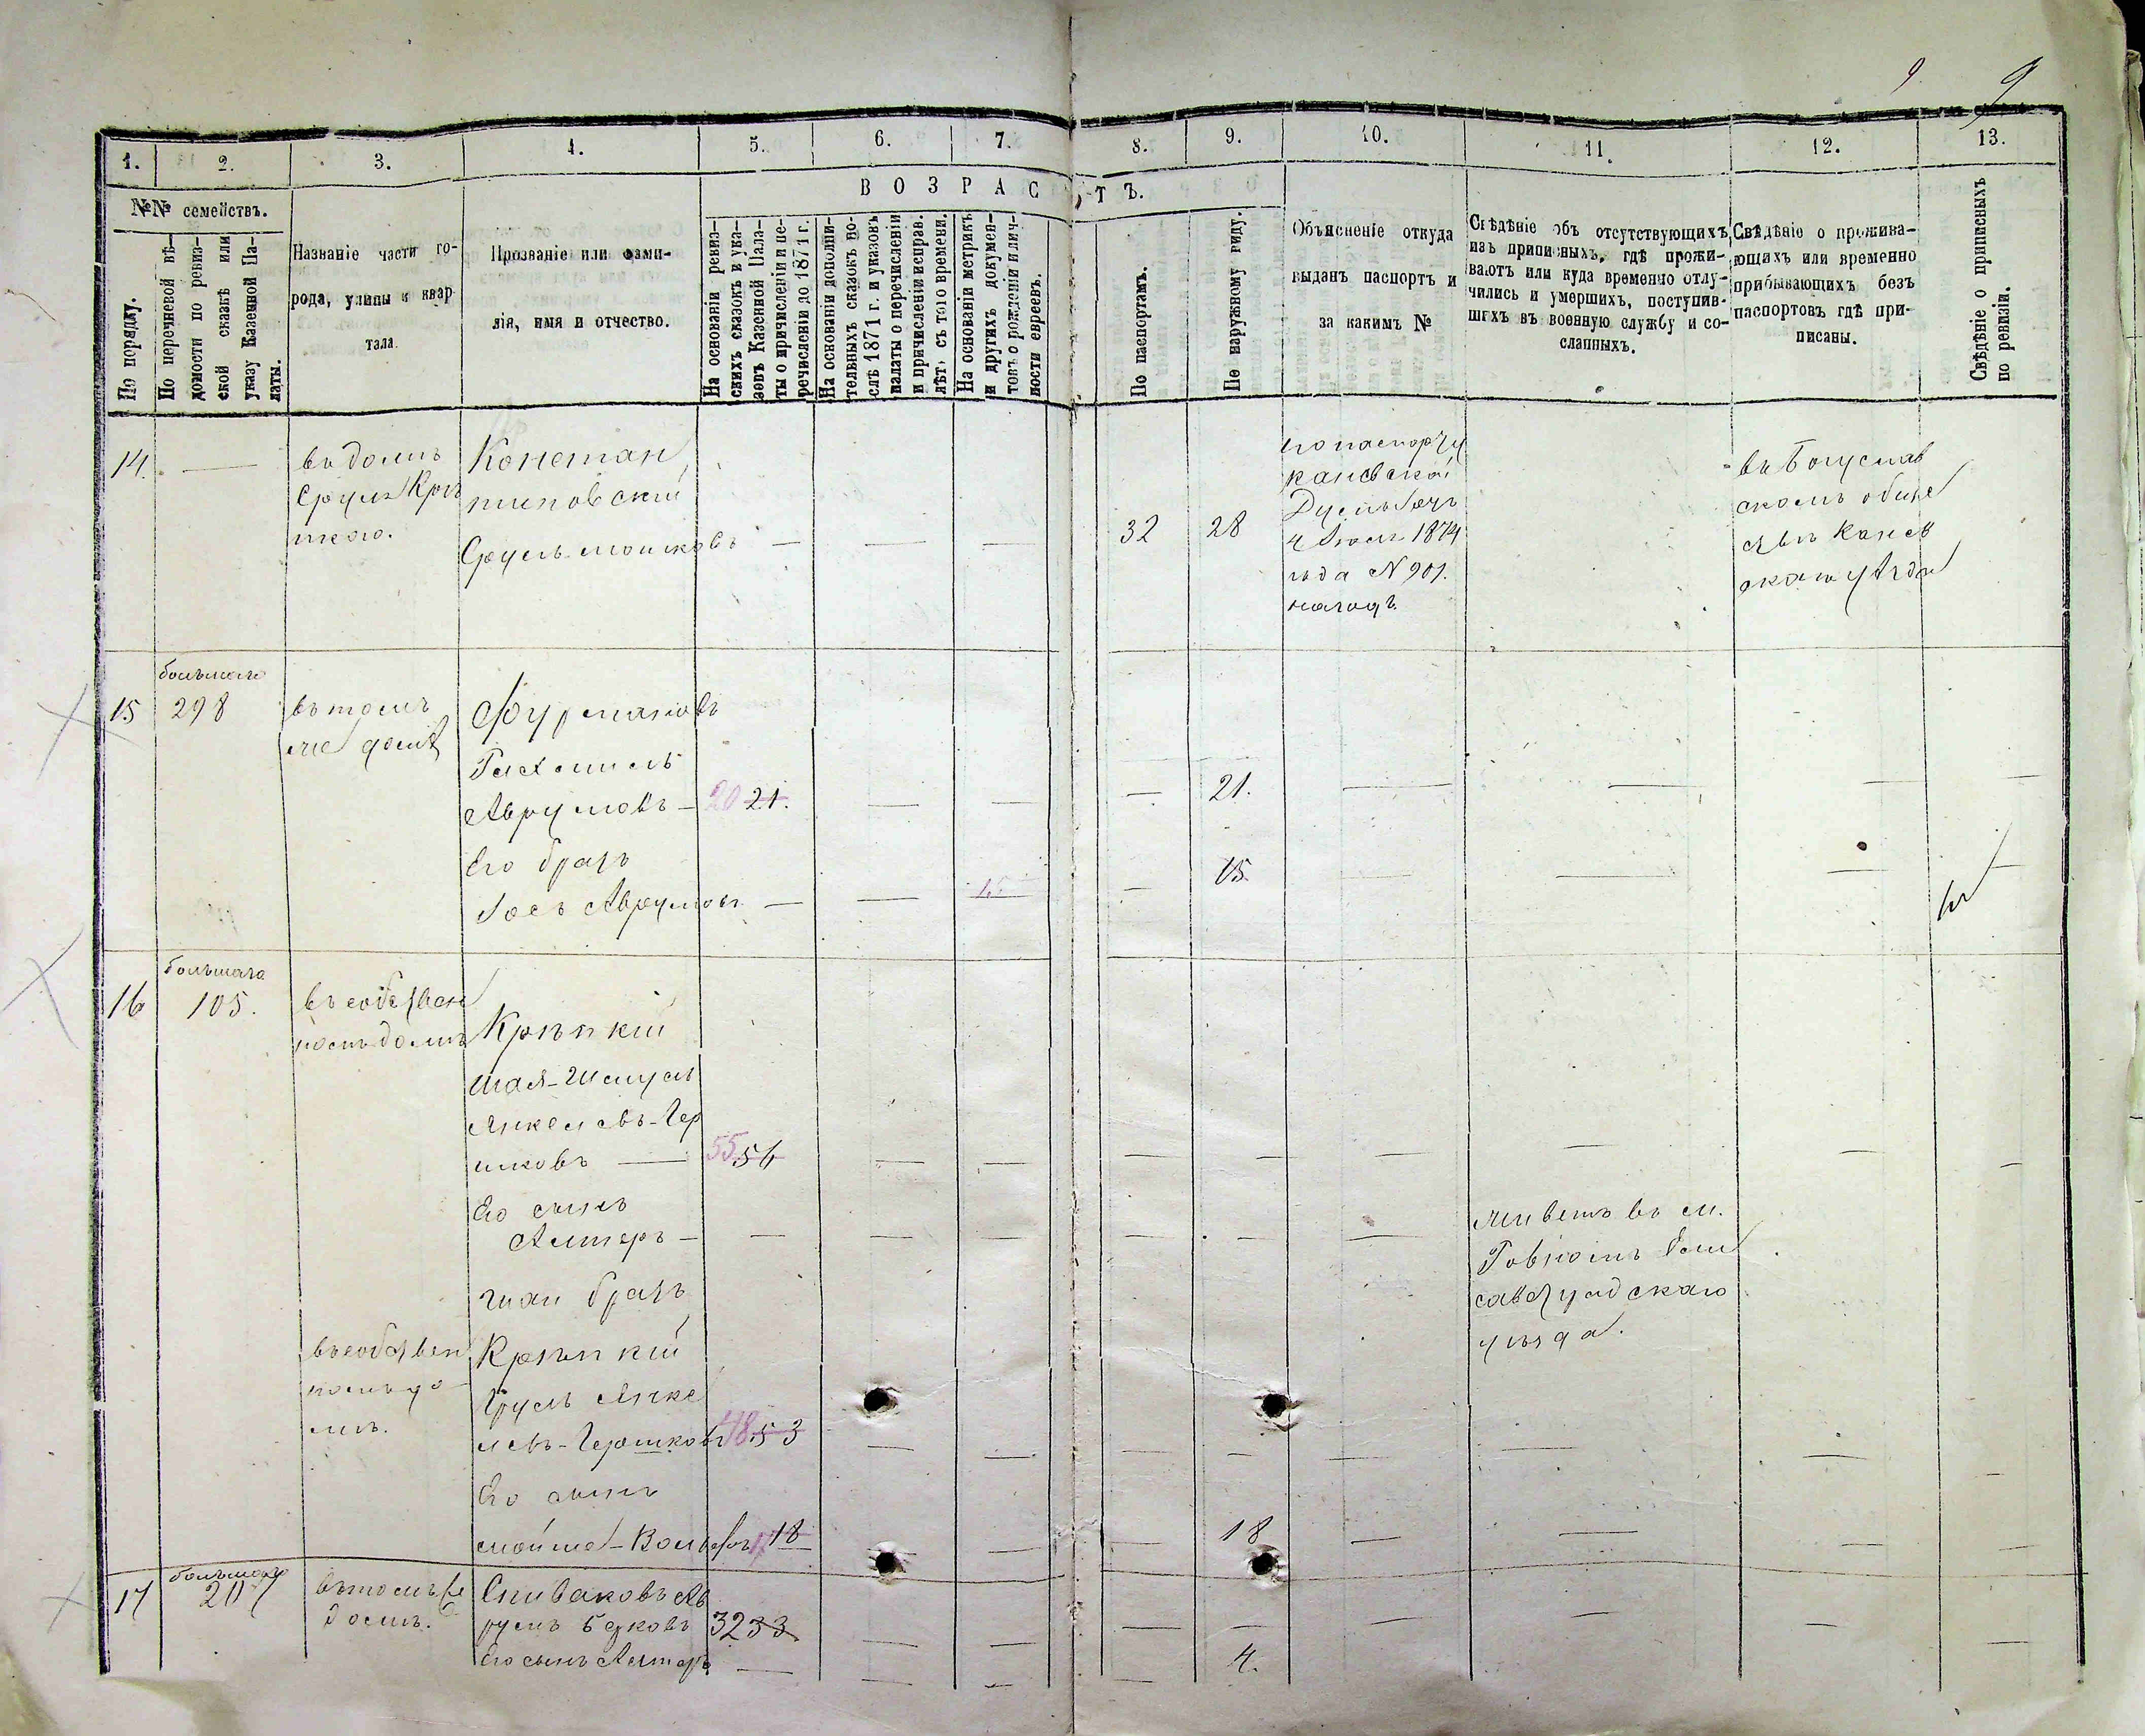 9 9
1. 2. 3. 4. 5. 6. 7. 8. 9. 10. 11. 12. 13.
№№ семействъ.
ВОЗРАСТЪ.
По порядку.
По перечневой вѣ-
домости по ревиз-
ской сказкѣ или
указу Казенной Па-
латы.
Названіе части го-
рода, улицы и квар-
тала
Прозваніе или фами-
лія, имя и отчество.
На основаніи ревиз-
скихъ сказокъ и ука-
зовъ Казенной Пала-
ты о причисленіи и пе-
речисленіи до 1871 г.
На основаніи дополни-
тельныхъ сказокъ по-
слѣ 1871 г. и указовъ
палаты о перечисленіи
и причисленіи исправ.
лѣтъ съ того времени.
На основаніи метрикъ
и другихъ докумен-
товъ о рожденіи и лич-
ности евреевъ.
По паспортамъ.
По наружному виду.
Объясненіе откуда
выданъ паспортъ и
за какимъ №
Свѣдѣніе объ отсутствующихъ
изъ приписныхъ, гдѣ прожи-
ваютъ или куда временно отлу-
чились и умершихъ, поступив-
шихъ въ военную службу и со-
сланныхъ.
Свѣдѣніе о прожива-
ющихъ или временно
прибывающихъ безъ
паспортовъ гдѣ при-
писаны.
Свѣдѣніе о приписныхъ
по ревизіи.
14. —
въ домѣ
Сруля Крѣ
пкого.
Констан
тиновскій
Сруль Мошковъ — — —
32 28
по паспорту
каневской
4 1874
года № 901.
на годъ
въ Богуслав
скомъ обще
ствѣ Канев
скаго уѣзда
15 большаго
298
въ томъ
же домѣ
Фурмановъ
Рахмиль
Аврумовъ — 20 21. — — — 21. — — — —
Его братъ
Іось Аврумовъ — — 15 — 15. — — — —
16 большаго
105.
въ собствен
номъ домѣ
Крѣпкій
Шая-Шмуль
Янкелевъ-Гер
шковъ — 55 56 — — — — — — — —
Его сынъ
Алтеръ — — — — — — —
живетъ въ м.
Ровномъ Елис
аветградскаго
уѣзда.
Шаи братъ
въ собствен
номъ до
мѣ.
Крѣпкій
Сруль Янке
левъ-Гершковъ 48 53 — — — — — — —
Его сынъ
Мойше-Вольфъ 17 18 — — — 18 — —
17 большаго
207
въ томъ же
домѣ.
Спиваковъ Ав
румъ Берковъ 32 33 — — — — — — — —
Его сынъ Алтеръ — — — — 4.